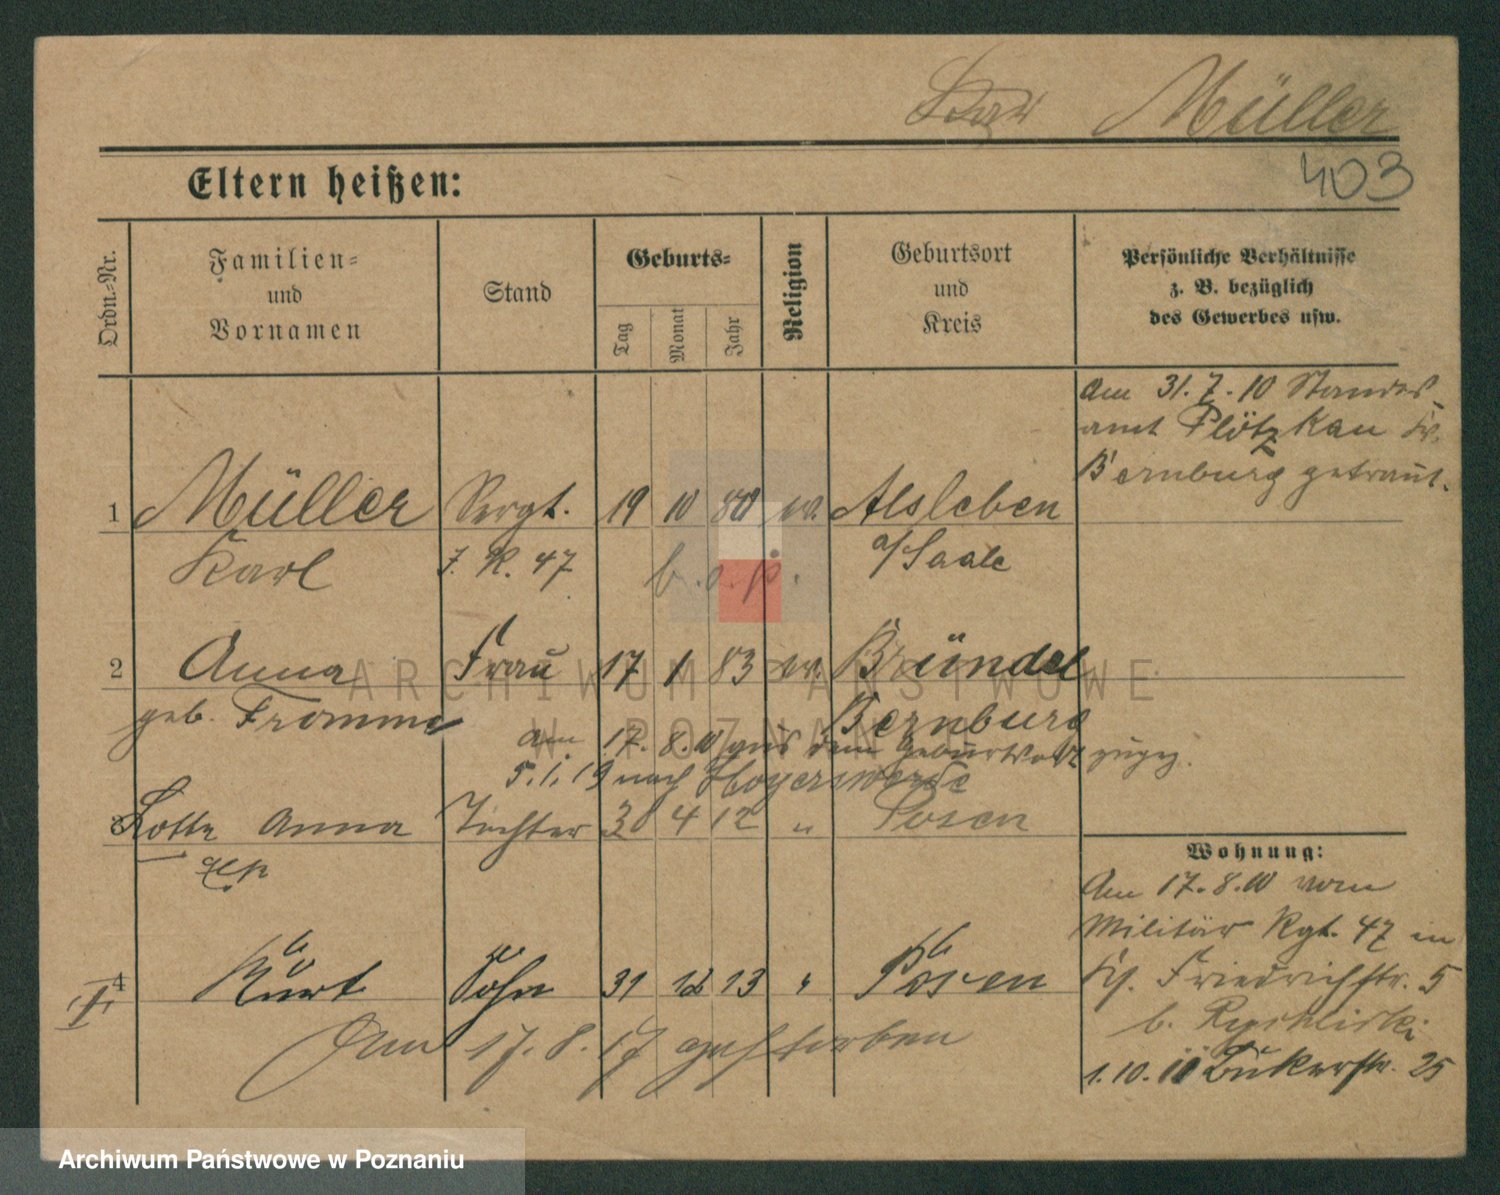 Müller
403
Eltern heißen:
Ordn.-Nr.
Familien=
und
Vornamen
Stand
Geburts=
Tag
Monat
Jahr
Religion
Geburtsort
und
Kreis
Persönliche Verhältnisse
z. B. bezüglich
des Gewerbes usw.
Am 31.7.10 Standes-
amt Plötzkau Kr.
Bernburg getraut.
1 Müller Sergt. 19 10 80 ev. Alsleben
Karl J. R. 47 a/Saale
2 Anna Frau 17 1 83 ev. Bründel
geb. Fromme Bernburg
am 17.8.10 aus dem Geburtsort zugez.
5.1.19 nach Hoyerswerda
3 Lotte Anna Tochter 30 4 12 " Posen
Wohnung:
Am 17.8.10 vom
Militär Rgt. 47 in
Friedrichstr. 5
b. Rychlicki
1.10.10 Bukerstr. 25
4 Kurt Sohn 31 12 13 " Posen
Am 17.8.17 gestorben
ARCHIWUM PAŃSTWOWE
W POZNANIU
Archiwum Państwowe w Poznaniu